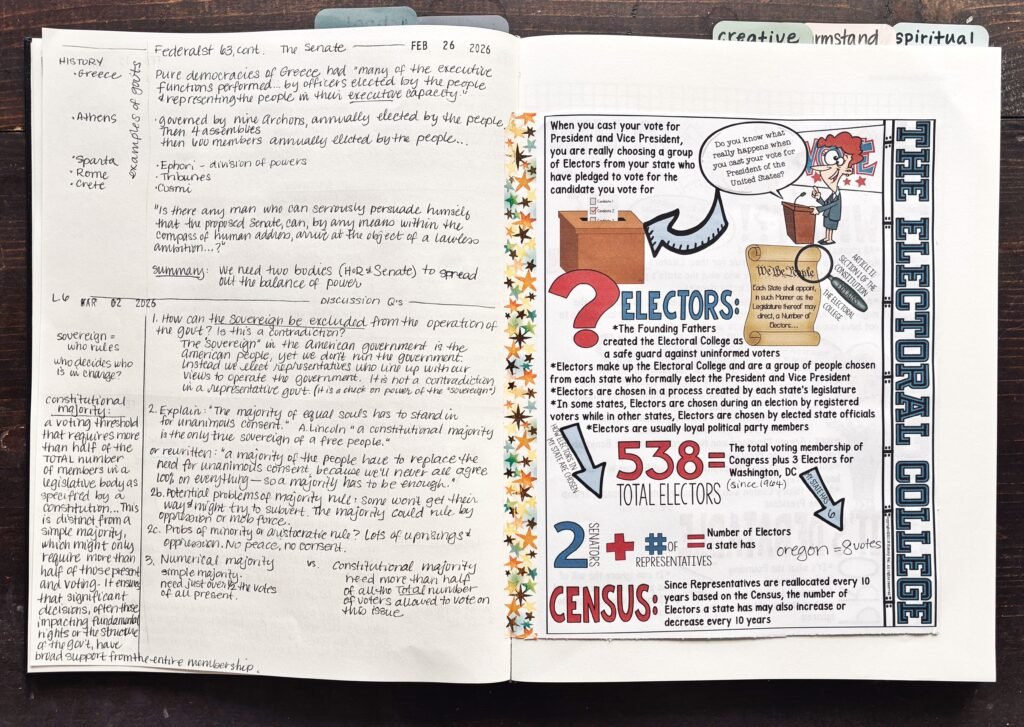 creative
rmstand
spiritual
Federalist 63, cont. The Senate
FEB 26 2026
HISTORY
• Greece
examples of govts
Pure democracies of Greece had "many of the executive
functions performed... by officers elected by the people
& representing the people in their executive capacity."
• Athens
• governed by nine archons, annually elected by the people,
then 4 assemblies
then 600 members annually elected by the people...
• Sparta
• Rome
• Crete
• Ephori - division of powers
• Tribunes
• Cosmi
"Is there any man who can seriously persuade himself
that the proposed Senate, can, by any means within the
compass of human address, arrive at the object of a lawless
ambition...?"
summary: we need two bodies (HoR & Senate) to spread
out the balance of power
L6 MAR 02 2026
DISCUSSION Q's
sovereign =
who rules
who decides who
is in charge?
constitutional
majority:
a voting threshold
that requires more
than half of the
TOTAL number
of members in a
legislative body as
specified by a
constitution... This
is distinct from a
simple majority,
which might only
require more than
half of those present
and voting. It ensures
that significant
decisions, often those
impacting fundamental
rights or the structure
of the gov't, have
broad support from the entire membership.
1. How can the sovereign be excluded from the operation of
the gov't? Is this a contradiction?
The "sovereign" in the American government is the
American people, yet we don't run the government.
Instead we elect representatives who line up with our
views to operate the government. It is not a contradiction
in a representative govt. (it is a check on power of the "sovereign")
2. Explain: "The majority of equal souls has to stand in
for unanimous consent." A. Lincoln "a constitutional majority
is the only true sovereign of a free people."
or rewritten: "a majority of the people have to replace the
need for unanimous consent, because we'll never all agree
100% on everything—so a majority has to be enough."
2b. Potential problems of majority rule: some won't get their
way & might try to subvert. The majority could rule by
oppression or mob force.
2c. Probs of minority or aristocratic rule? Lots of uprisings &
oppression. No peace, no consent.
3. Numerical majority
simple majority.
need just over 1/2 the votes
of all present.
vs.
Constitutional majority
need more than half
of all the Total number
of voters allowed to vote on
this issue
When you cast your vote for
President and Vice President,
you are really choosing a group
of Electors from your state who
have pledged to vote for the
candidate you vote for
Do you know what
really happens when
you cast your vote for
President of the
United States?
VOTE
Candidate 1
Candidate 2
We the People
Each State shall appoint,
in such Manner as the
Legislature thereof may
direct, a Number of
Electors...
ARTICLE II:
SECTION 1 OF THE
CONSTITUTION
THE ELECTORAL
COLLEGE
THE ELECTORAL COLLEGE
?
ELECTORS:
*The Founding Fathers
created the Electoral College as
a safe guard against uninformed voters
*Electors make up the Electoral College and are a group of people chosen
from each state who formally elect the President and Vice President
*Electors are chosen in a process created by each state's legislature
*In some states, Electors are chosen during an election by registered
voters while in other states, Electors are chosen by elected state officials
*Electors are usually loyal political party members
HOW ELECTORS IN
MY STATE ARE CHOSEN
538 =
TOTAL ELECTORS
The total voting membership of
Congress plus 3 Electors for
Washington, DC
(since 1964)
2 SENATORS + # OF REPRESENTATIVES =
Number of Electors
a state has
oregon = 8 votes
CENSUS:
Since Representatives are reallocated every 10
years based on the Census, the number of
Electors a state has may also increase or
decrease every 10 years